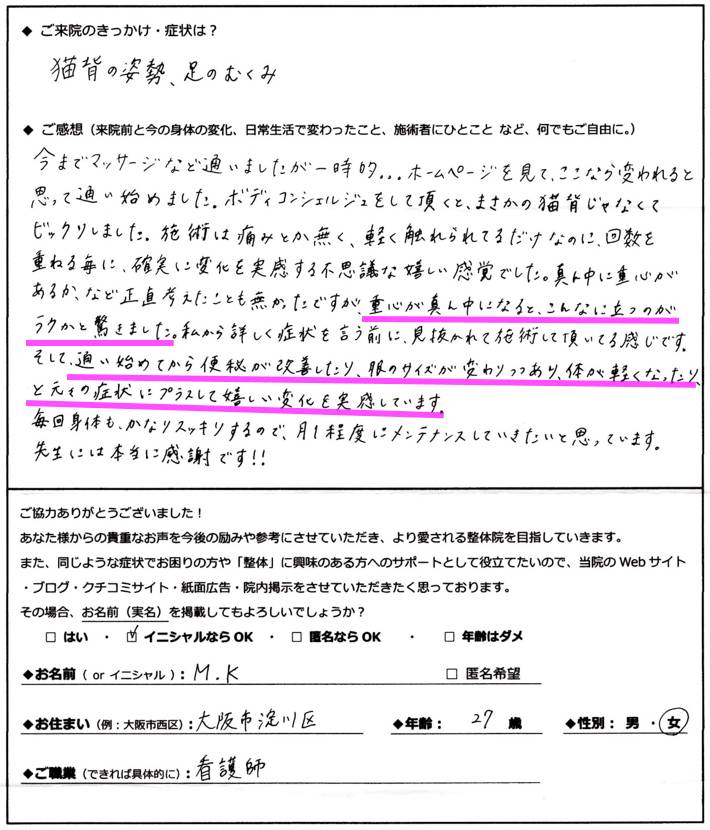 ◆ ご来院のきっかけ・症状は？
猫背の姿勢、足のむくみ
◆ ご感想（来院前と今の身体の変化、日常生活で変わったこと、施術者にひとこと など、何でもご自由に。）
今までマッサージなど通いましたが一時的...ホームページを見て、ここなら変われると
思って通い始めました。ボディコンシェルジュをして頂くと、まさかの猫背じゃなくて
ビックリしました。施術は痛みとか無く、軽く触れられてるだけなのに、回数を
重ねる毎に、確実に変化を実感する不思議な嬉しい感覚でした。真ん中に重心が
あるか、など正直考えたことも無かったですが、重心が真ん中になると、こんなに立つのが
ラクかと驚きました。私から詳しく症状を言う前に、見抜かれて施術して頂いてる感じです。
そして、通い始めてから便秘が改善したり、服のサイズが変わりつつあり、体が軽くなったり、
と元々の症状にプラスして嬉しい変化を実感しています。
毎回身体も、かなりスッキリするので、月1程度にメンテナンスしていきたいと思っています。
先生には本当に感謝です!!
ご協力ありがとうございました！
あなた様からの貴重なお声を今後の励みや参考にさせていただき、より愛される整体院を目指していきます。
また、同じような症状でお困りの方や「整体」に興味のある方へのサポートとして役立てたいので、当院の Web サイト
・ブログ・クチコミサイト・紙面広告・院内掲示をさせていただきたく思っております。
その場合、お名前（実名）を掲載してもよろしいでしょうか？
□ はい ・ ☑ イニシャルなら OK ・ □ 匿名なら OK ・ □ 年齢はダメ
◆お名前（ or イニシャル ）： M.K □ 匿名希望
◆お住まい（例：大阪市西区）：大阪市淀川区 ◆年齢： 27 歳 ◆性別： 男 ・ 女
◆ご職業（できれば具体的に）：看護師